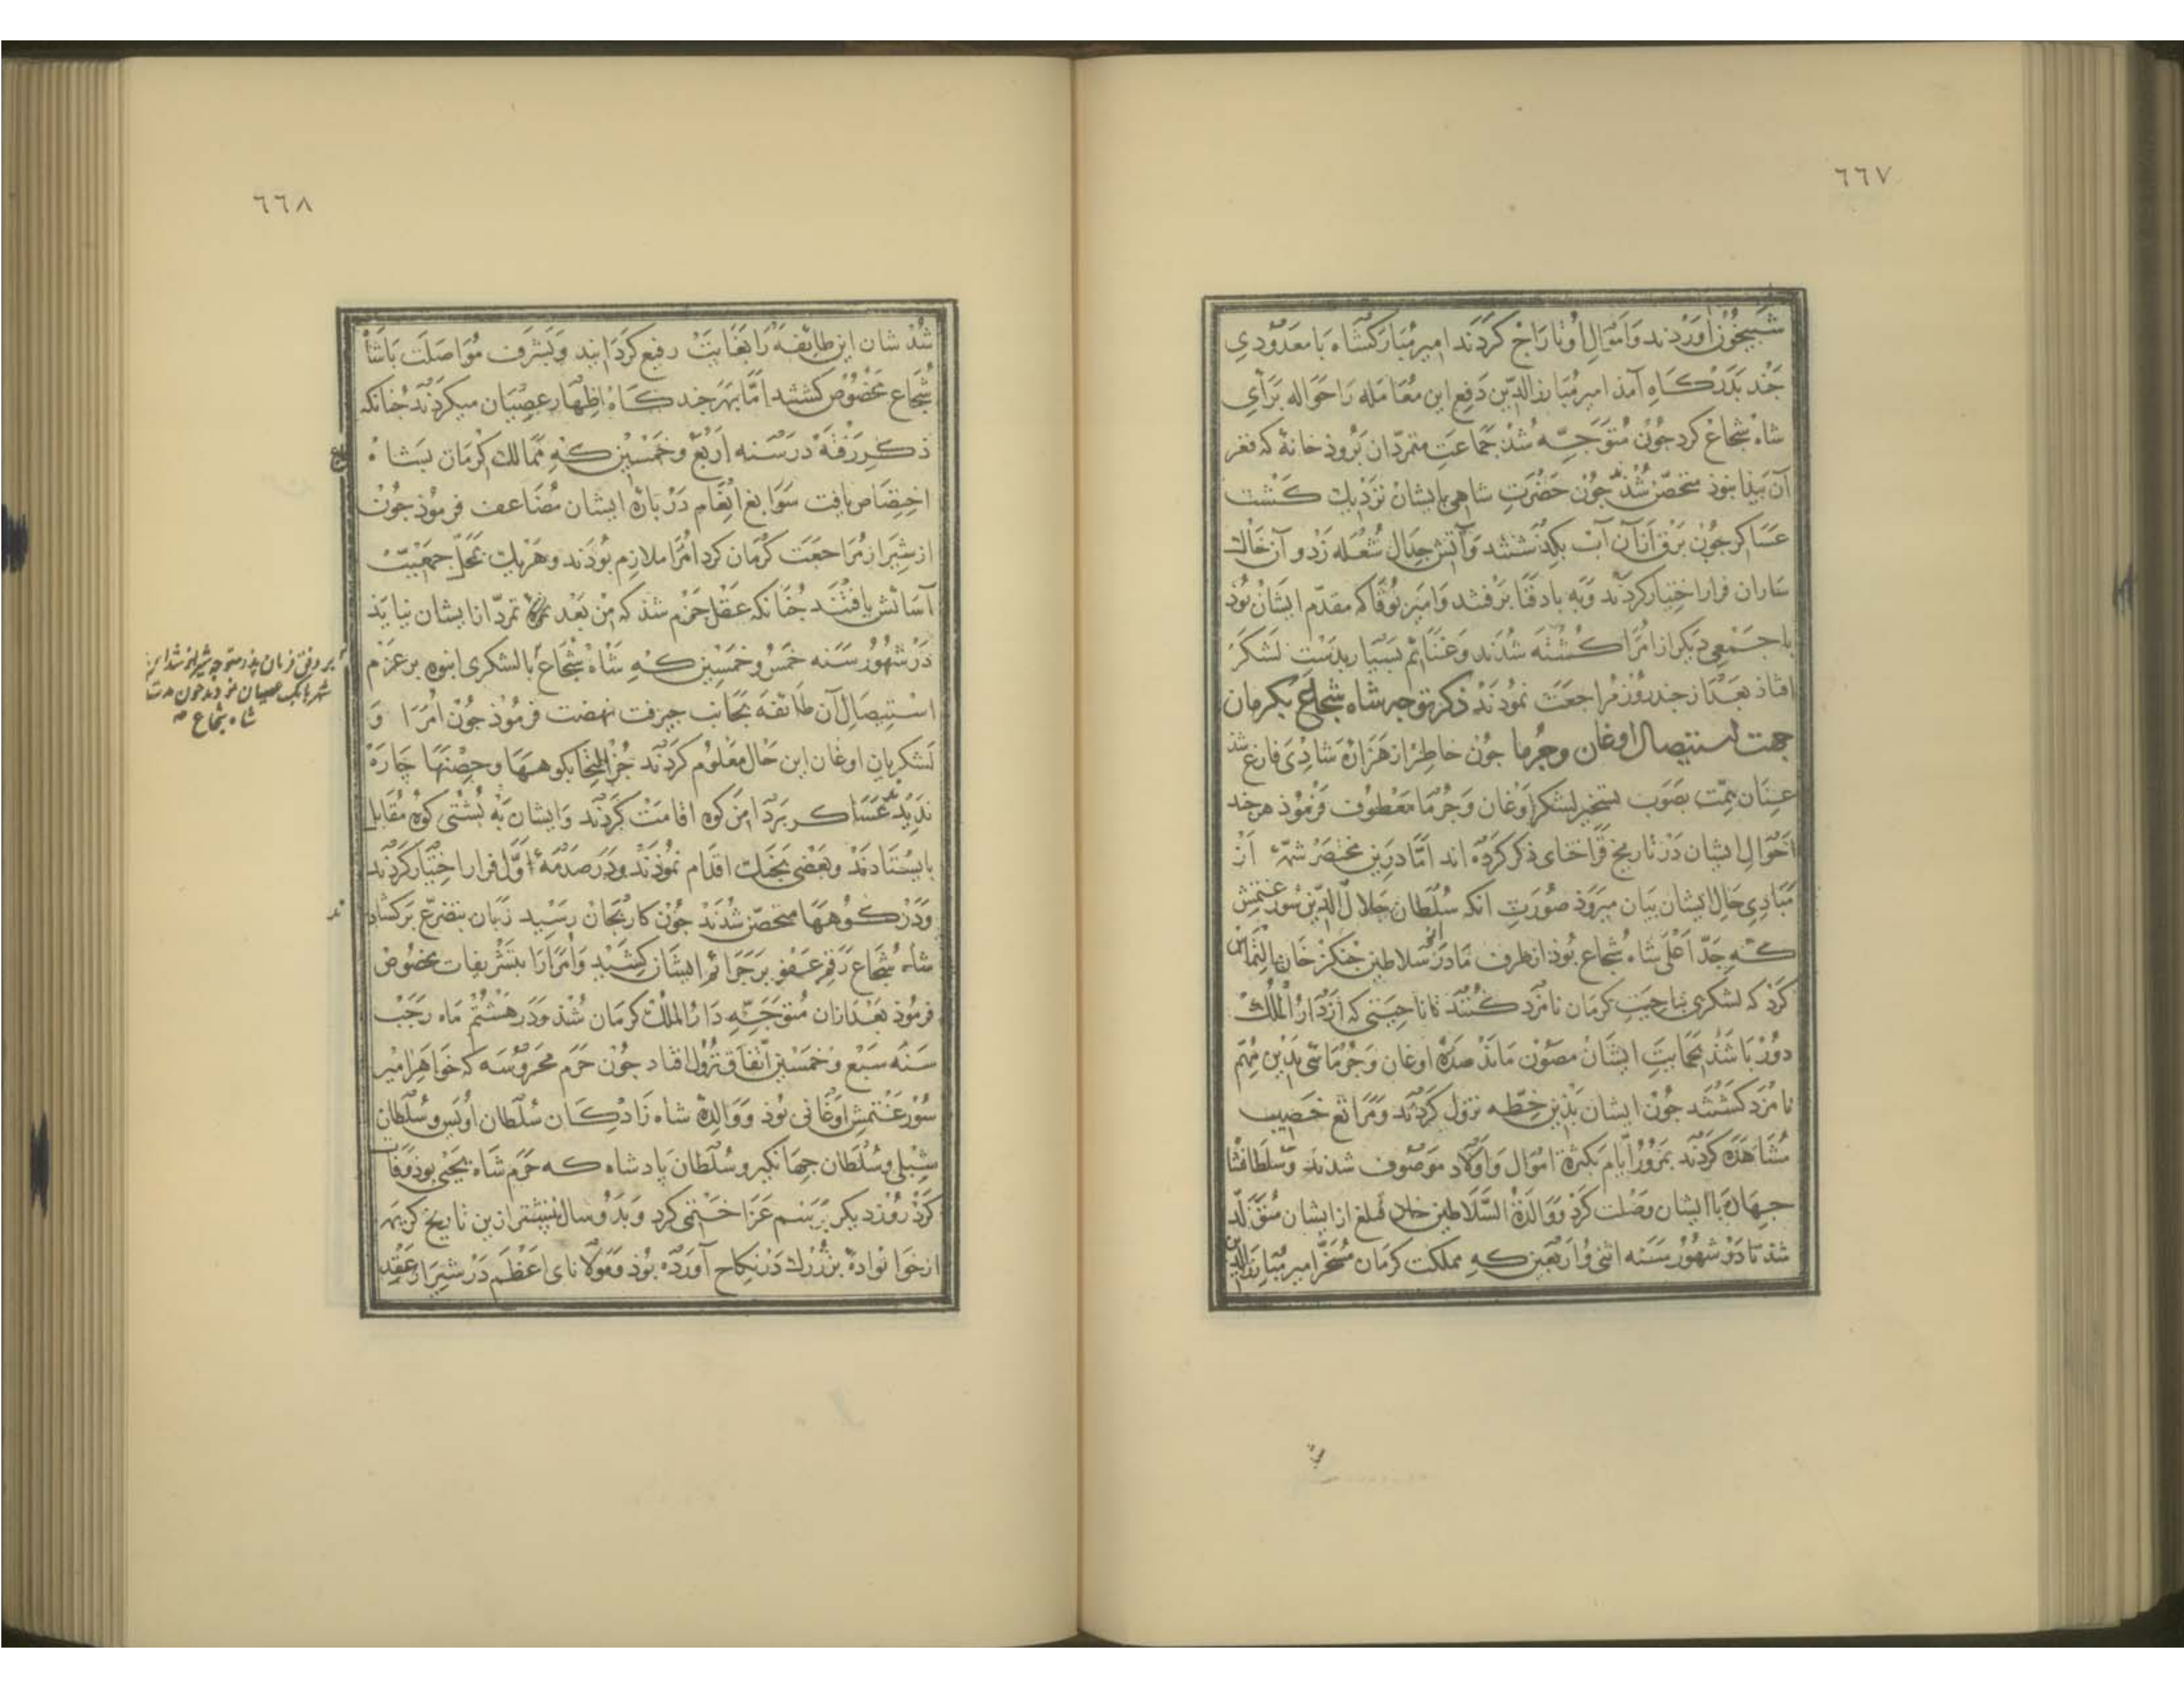 ٦٦٧
شبیخون آوردند و اموال او تاراج کردند امیر مبارکشاه با معدودی
چند بدرگاه آمد امیر مبارزالدین دفع این معامله را حواله برای
شاه شجاع کرد چون متوجه شد جماعت متمردان برودخانهٔ که قعر
آن پیدا نبوذ متحصن شدند چون حضرت شاهی بایشان نزدیک گشت
عساکر چون برق از آن آب بگذشتند و آتش جدال شعله زد و آن خاک
ساران فرار اختیار کردند و به باد فنا برفتند و امیر نوقا که مقدم ایشان بود
با جمعی دیگر از امرا کشته شدند و غنائم بسیار بدست لشکر
افتاذ بعد از چند روز مراجعت نمودند ذکر توجه شاه شجاع بکرمان
جهت استیصال اوغان و جرما چون خاطر از هزارهٔ شادی فارغ شد
عنان همت بصوب تسخیر لشکر اوغان و جرما معطوف فرموذ هرچند
احوال ایشان در تاریخ قراختای ذکر کرده اند اما درین مختصر شمهٔ از
مبادی حال ایشان بیان میروذ صورت انکه سلطان جلال الدین سورغتمش
که جد اعلی شاه شجاع بوذ از طرف مادر از سلاطین جنکز خان التماس
کرد که لشکری بناحیت کرمان نامزد کنند تا ناحیتی که از دار الملک
دور باشد بحمایت ایشان مصون ماند صدهٔ اوغان و جرمائی بدین مهم
نامزد گشتند چون ایشان بدین خطه نزول کردند و مراتع خصیب
مشاهده کردند بمرور ایام بکثرة اموال و اولاد موصوف شدند و سلطان
جهان با ایشان وصلت کرد و والدة السلاطین خان قتلغ از ایشان متولد
شذ تا در شهور سنه اثنی و اربعین که مملکت کرمان مسخر امیر مبارزالدین
٦٦٨
شد شان این طائفه را بغایت رفیع کردانید و بشرف مواصلت با شاه
شجاع مخصوص کشتند اما بهر چند گاه اظهار عصیان میکردند چنانکه
ذکر رفته در سنه اربع و خمسین که ممالک کرمان بشاه
اختصاص یافت سوابغ انعام در بارهٔ ایشان مضاعف فرموذ چون
از شیراز مراجعت کرمان کرد امرا ملازم بودند و هریک بمحل جمعیت
آسائش یافتند چنانکه عقل جزم شذ که من بعد تمرد از ایشان نیاید
در شهور سنه خمس و خمسین که شاه شجاع با لشکری انبوه بر عزم
استیصال آن طائفه بجانب جیرفت نهضت فرموذ چون امرا و
لشکریان اوغان این حال معلوم کردند جز التجا بکوهها و حصنها چاره
ندیدند عساکر بر دامن کوه اقامت کردند و ایشان به پشتی کوه مقابل
بایستادند و بعضی بجنگ اقدام نمودند و در صدمهٔ اول فرار اختیار کردند
و در کوهها متحصن شدند چون کار بجان رسید زبان بتضرع برکشادند
شاه شجاع رقم عفو بر جرائم ایشان کشید و امرا را بتشریفات مخصوص
فرموذ بعد ازان متوجه دار الملک کرمان شذ و در هشتم ماه رجب
سنه سبع و خمسین اتفاق نزول افتاد چون حرم محروسه که خواهر امیر
سورغتمش اوغانی بوذ و والدهٔ شاه زادگان سلطان اویس و سلطان
شبلی و سلطان جهانکیر و سلطان پادشاه که حرم شاه یحیی بوذ وفات
کرد روز دیگر برسم عزا ختمی کرد و بدو سال پیشتر ازین تاریخ کریمهٔ
از خوانوادهٔ بزرگ در نکاح آورده بوذ و مولانای اعظم در شیراز عقد
بر وفق فرمان پدر متوجه شیراز شد این
شاه شجاع